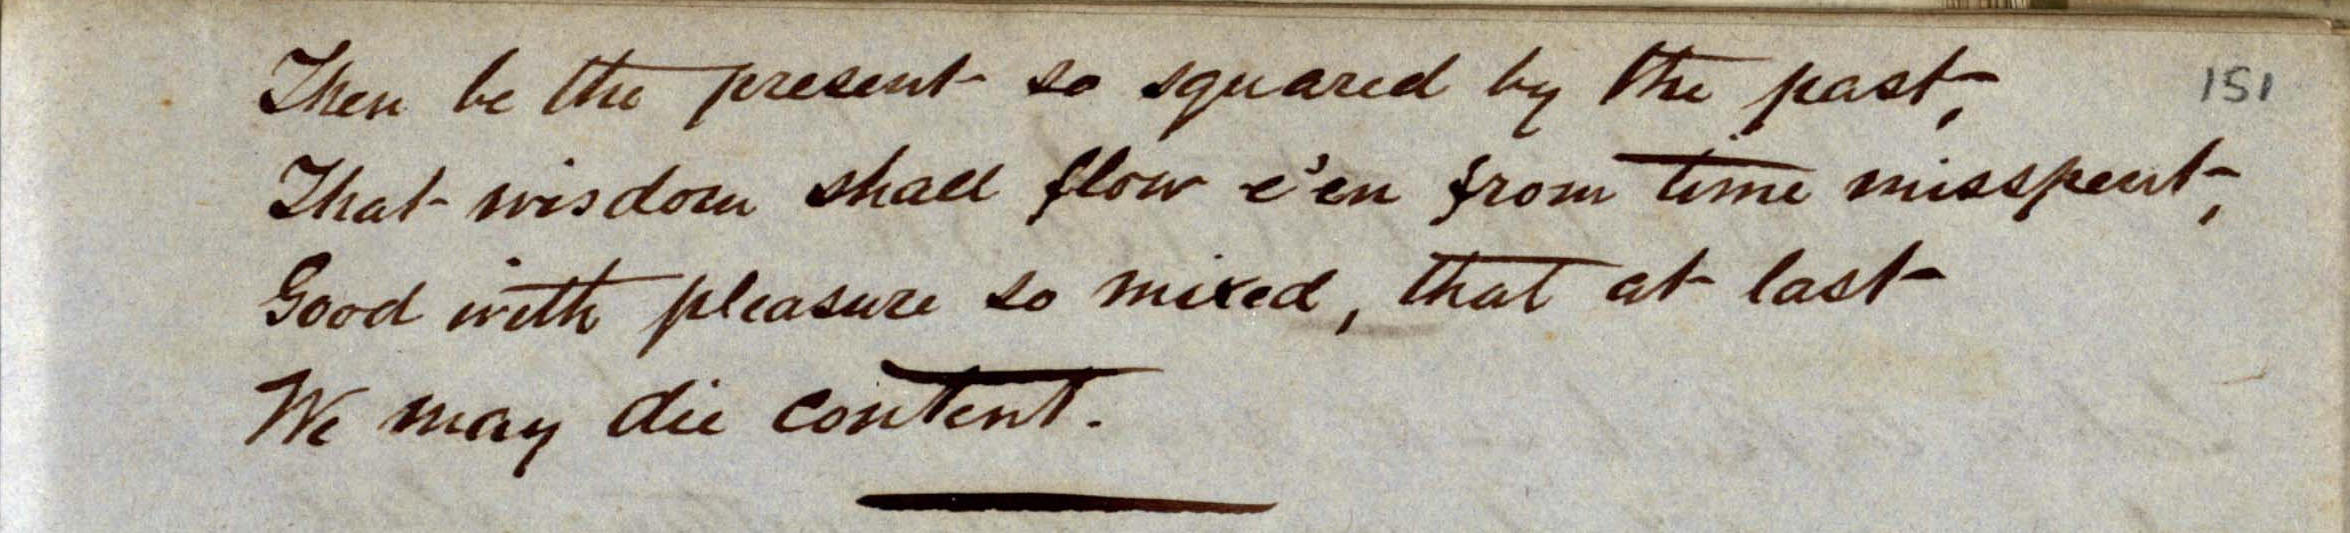 Then be the present so squared by the past, 151
That wisdom shall flow e'en from time misspent,
Good with pleasure so mixed, that at last
We may die content.